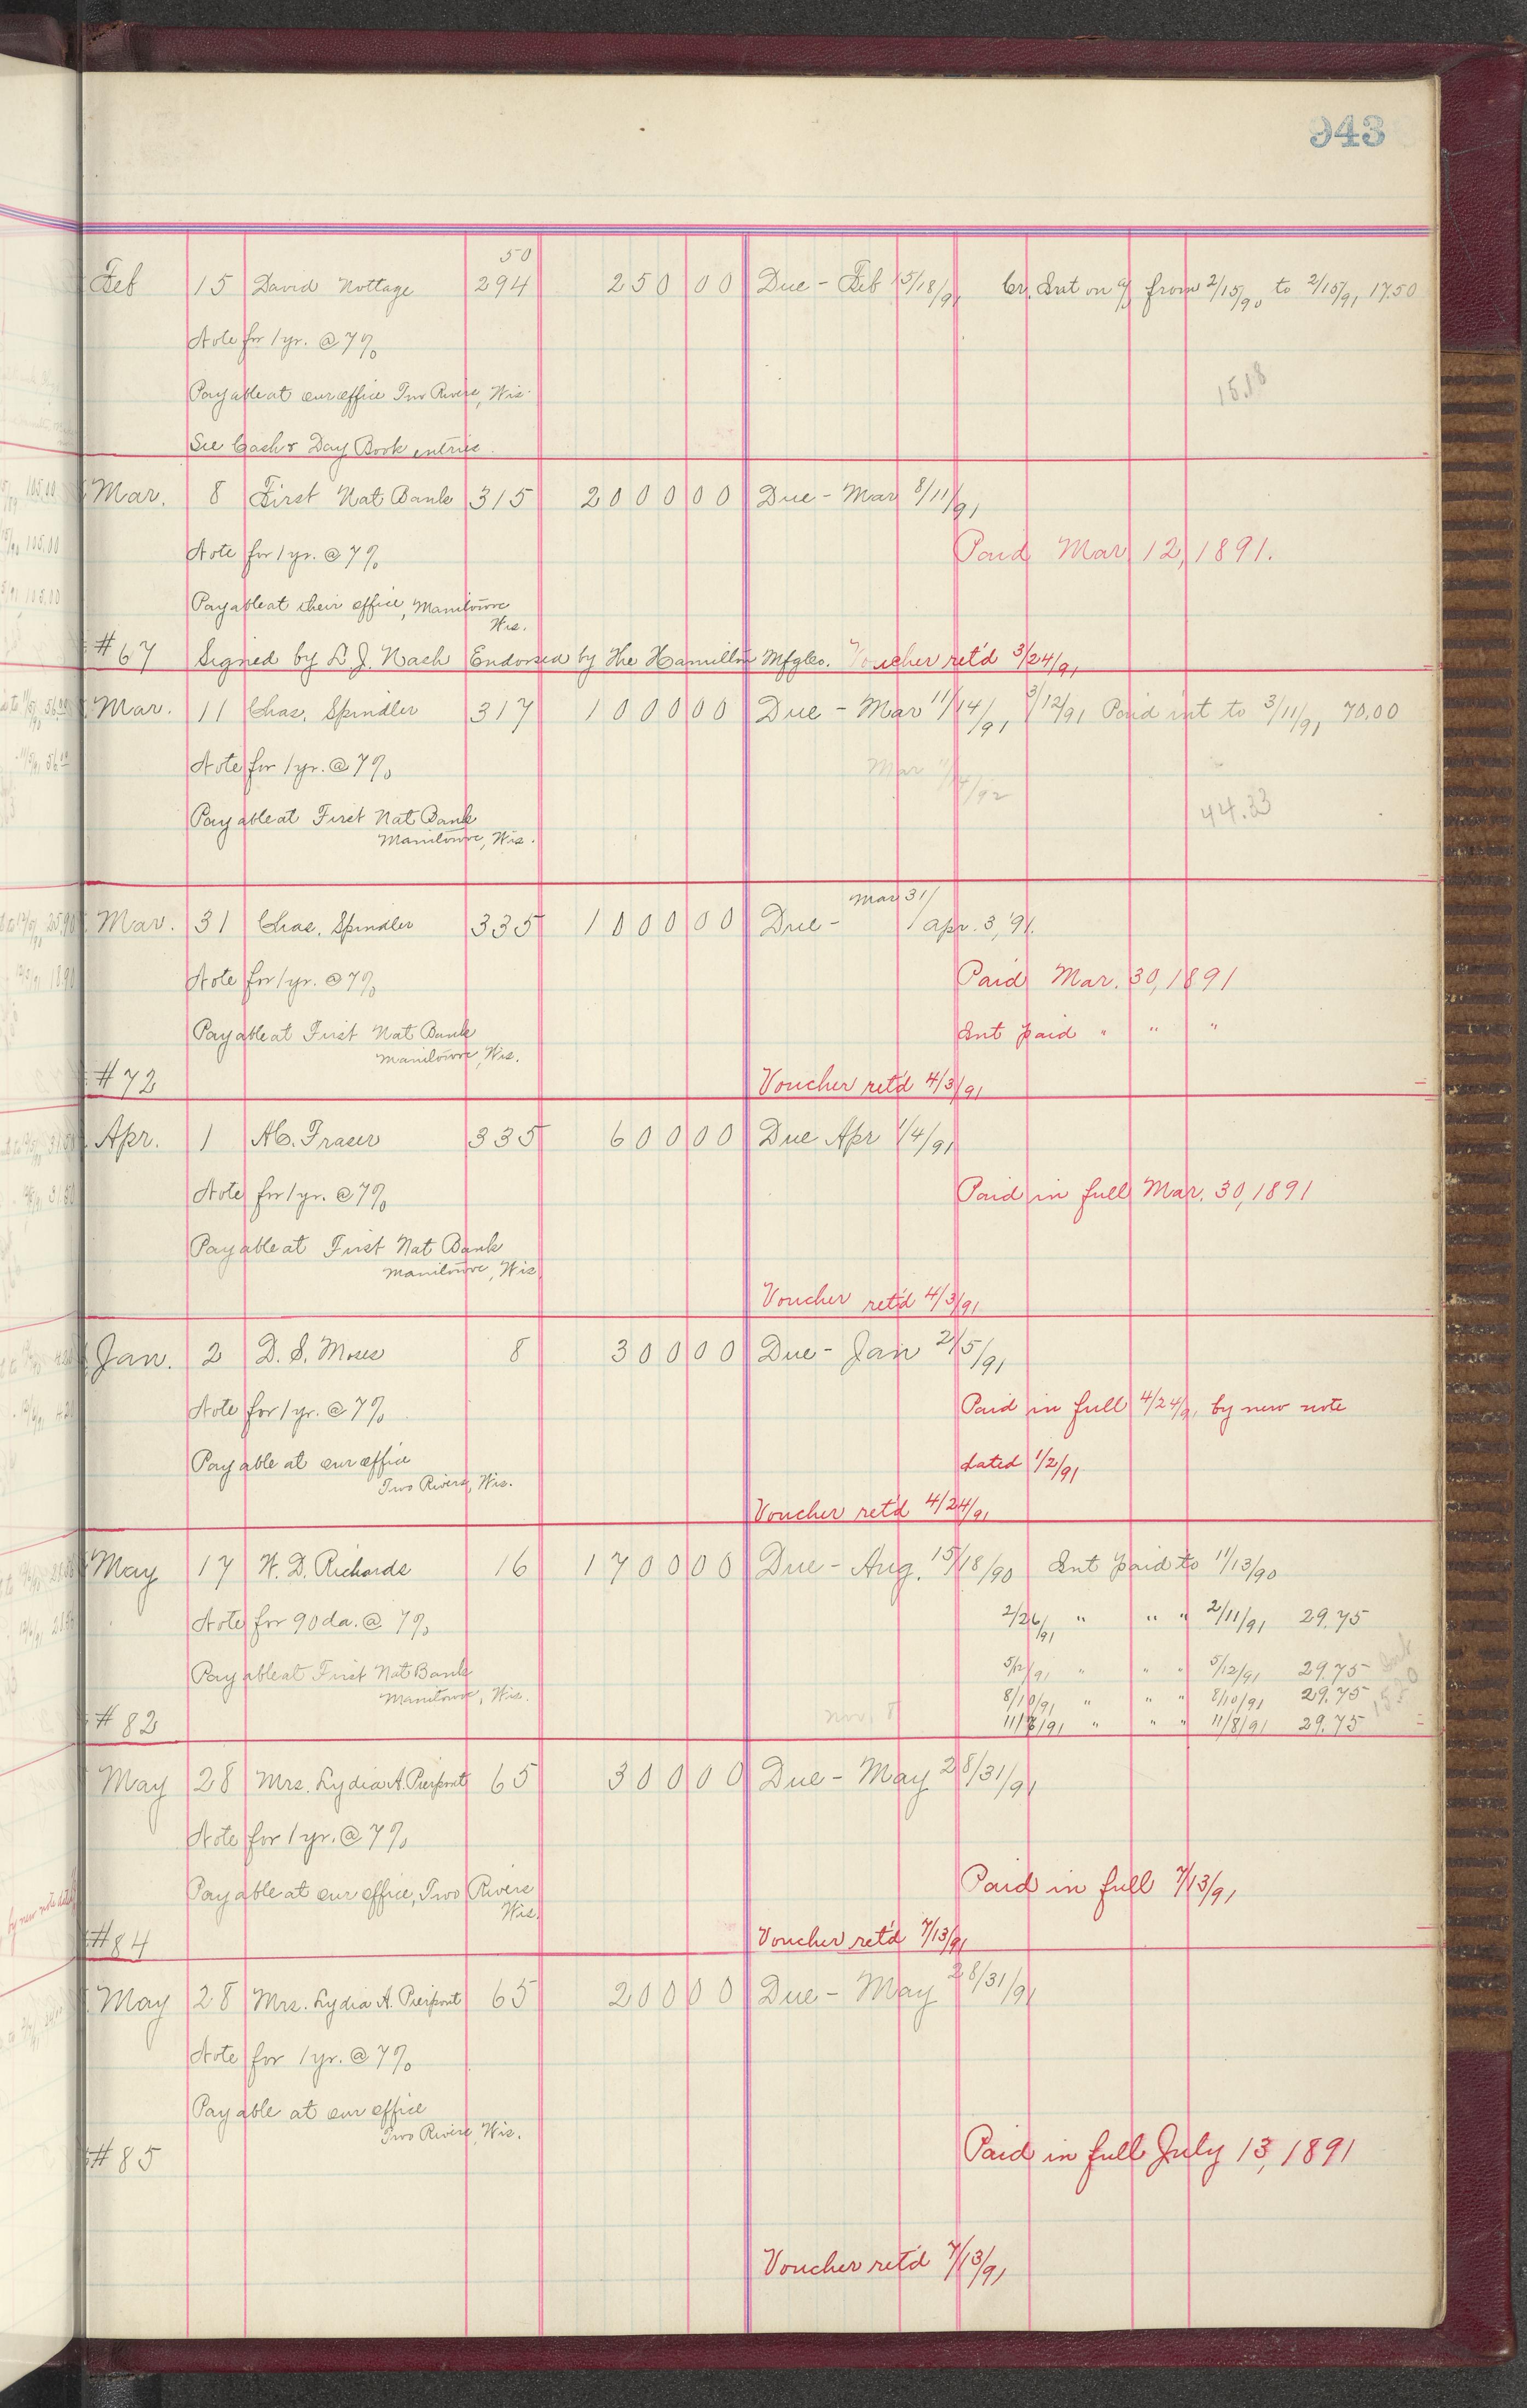 943
50
Feb 15 David Nottage 294 250 00 Due - Feb 15/18/91 Cr. Int on a/c from 2/15/90 to 2/15/91 17.50
Note for 1 yr. @ 7%
15.18
Payable at our office Two Rivers, Wis.
See Cash & Day Book entries.
Mar. 8 First Nat Bank 315 2000 00 Due - Mar 8/11/91
Note for 1 yr. @ 7% Paid Mar 12, 1891.
Payable at their office, Manitowoc
Wis.
#67 Signed by L. J. Nash Endorsed by The Hamilton Mfg Co. Voucher ret'd 3/24/91
Mar. 11 Chas. Spindler 317 1000 00 Due - Mar 11/14/91 3/12/91 Paid int to 3/11/91 70.00
Note for 1 yr. @ 7% Mar 11/14/92
44.33
Payable at First Nat Bank
Manitowoc, Wis.
Mar 31/
Mar. 31 Chas. Spindler 335 1000 00 Due - Apr. 3, '91.
Note for 1 yr. @ 7% Paid Mar. 30, 1891
Payable at First Nat Bank Int paid " " "
Manitowoc, Wis.
#72 Voucher ret'd 4/3/91
Apr. 1 A C. Fraser 335 600 00 Due Apr 1/4/91
Note for 1 yr. @ 7% Paid in full Mar. 30, 1891
Payable at First Nat Bank
Manitowoc, Wis
Voucher ret'd 4/3/91
Jan. 2 D. S. Moses 8 300 00 Due - Jan 2/5/91
Note for 1 yr. @ 7% Paid in full 4/24/91 by new note
Payable at our office dated 1/2/91
Two Rivers, Wis.
Voucher ret'd 4/24/91
May 17 W. D. Richards 16 1700 00 Due - Aug. 15/18/90 Int paid to 11/13/90
Note for 90 da. @ 7% 2/26/91 " " " 2/11/91 29.75
Payable at First Nat Bank 5/12/91 " " " 5/12/91 29.75
Manitowoc, Wis. 8/10/91 " " " 8/10/91 29.75
#82 Nov. 8 11/8/91 " " " 11/8/91 29.75
May 28 Mrs. Lydia A. Pierpont 65 300 00 Due - May 28/31/91
Note for 1 yr. @ 7%
Payable at our office, Two Rivers Paid in full 7/13/91
Wis.
#84 Voucher ret'd 7/13/91
May 28 Mrs. Lydia A. Pierpont 65 200 00 Due - May 28/31/91
Note for 1 yr. @ 7%
Payable at our office
Two Rivers, Wis.
#85 Paid in full July 13, 1891
Voucher ret'd 7/13/91